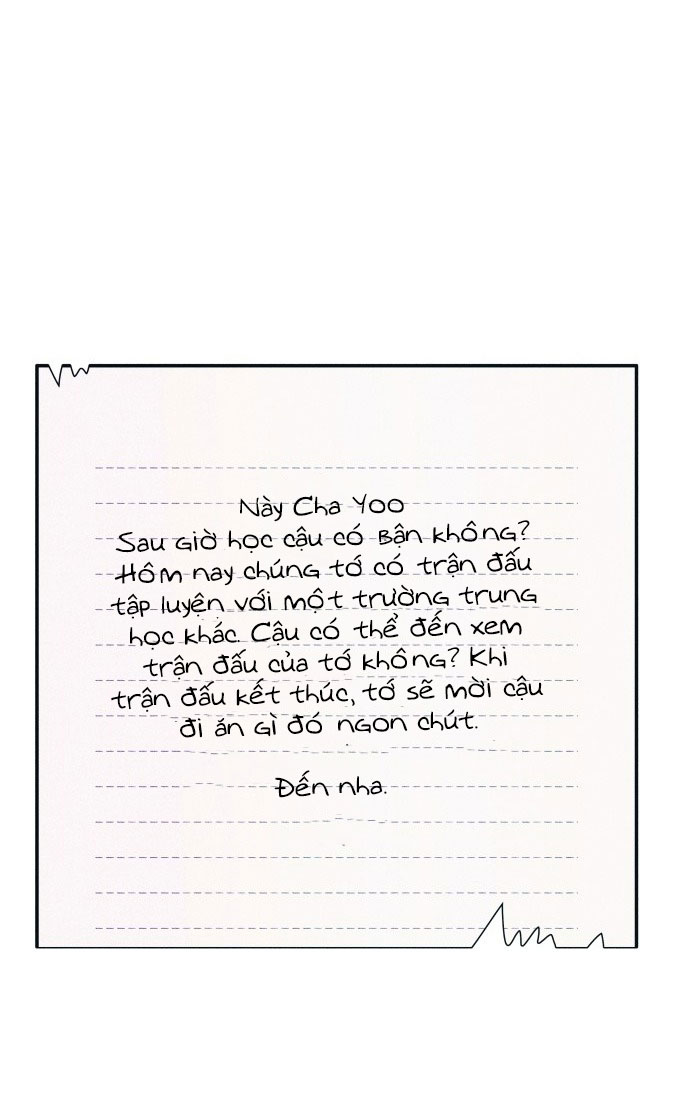 Này Cha Yoo
Sau giờ học cậu có bận không?
Hôm nay chúng tớ có trận đấu
tập luyện với một trường trung
học khác. Cậu có thể đến xem
trận đấu của tớ không? Khi
trận đấu kết thúc, tớ sẽ mời cậu
đi ăn gì đó ngon chút.
Đến nha.